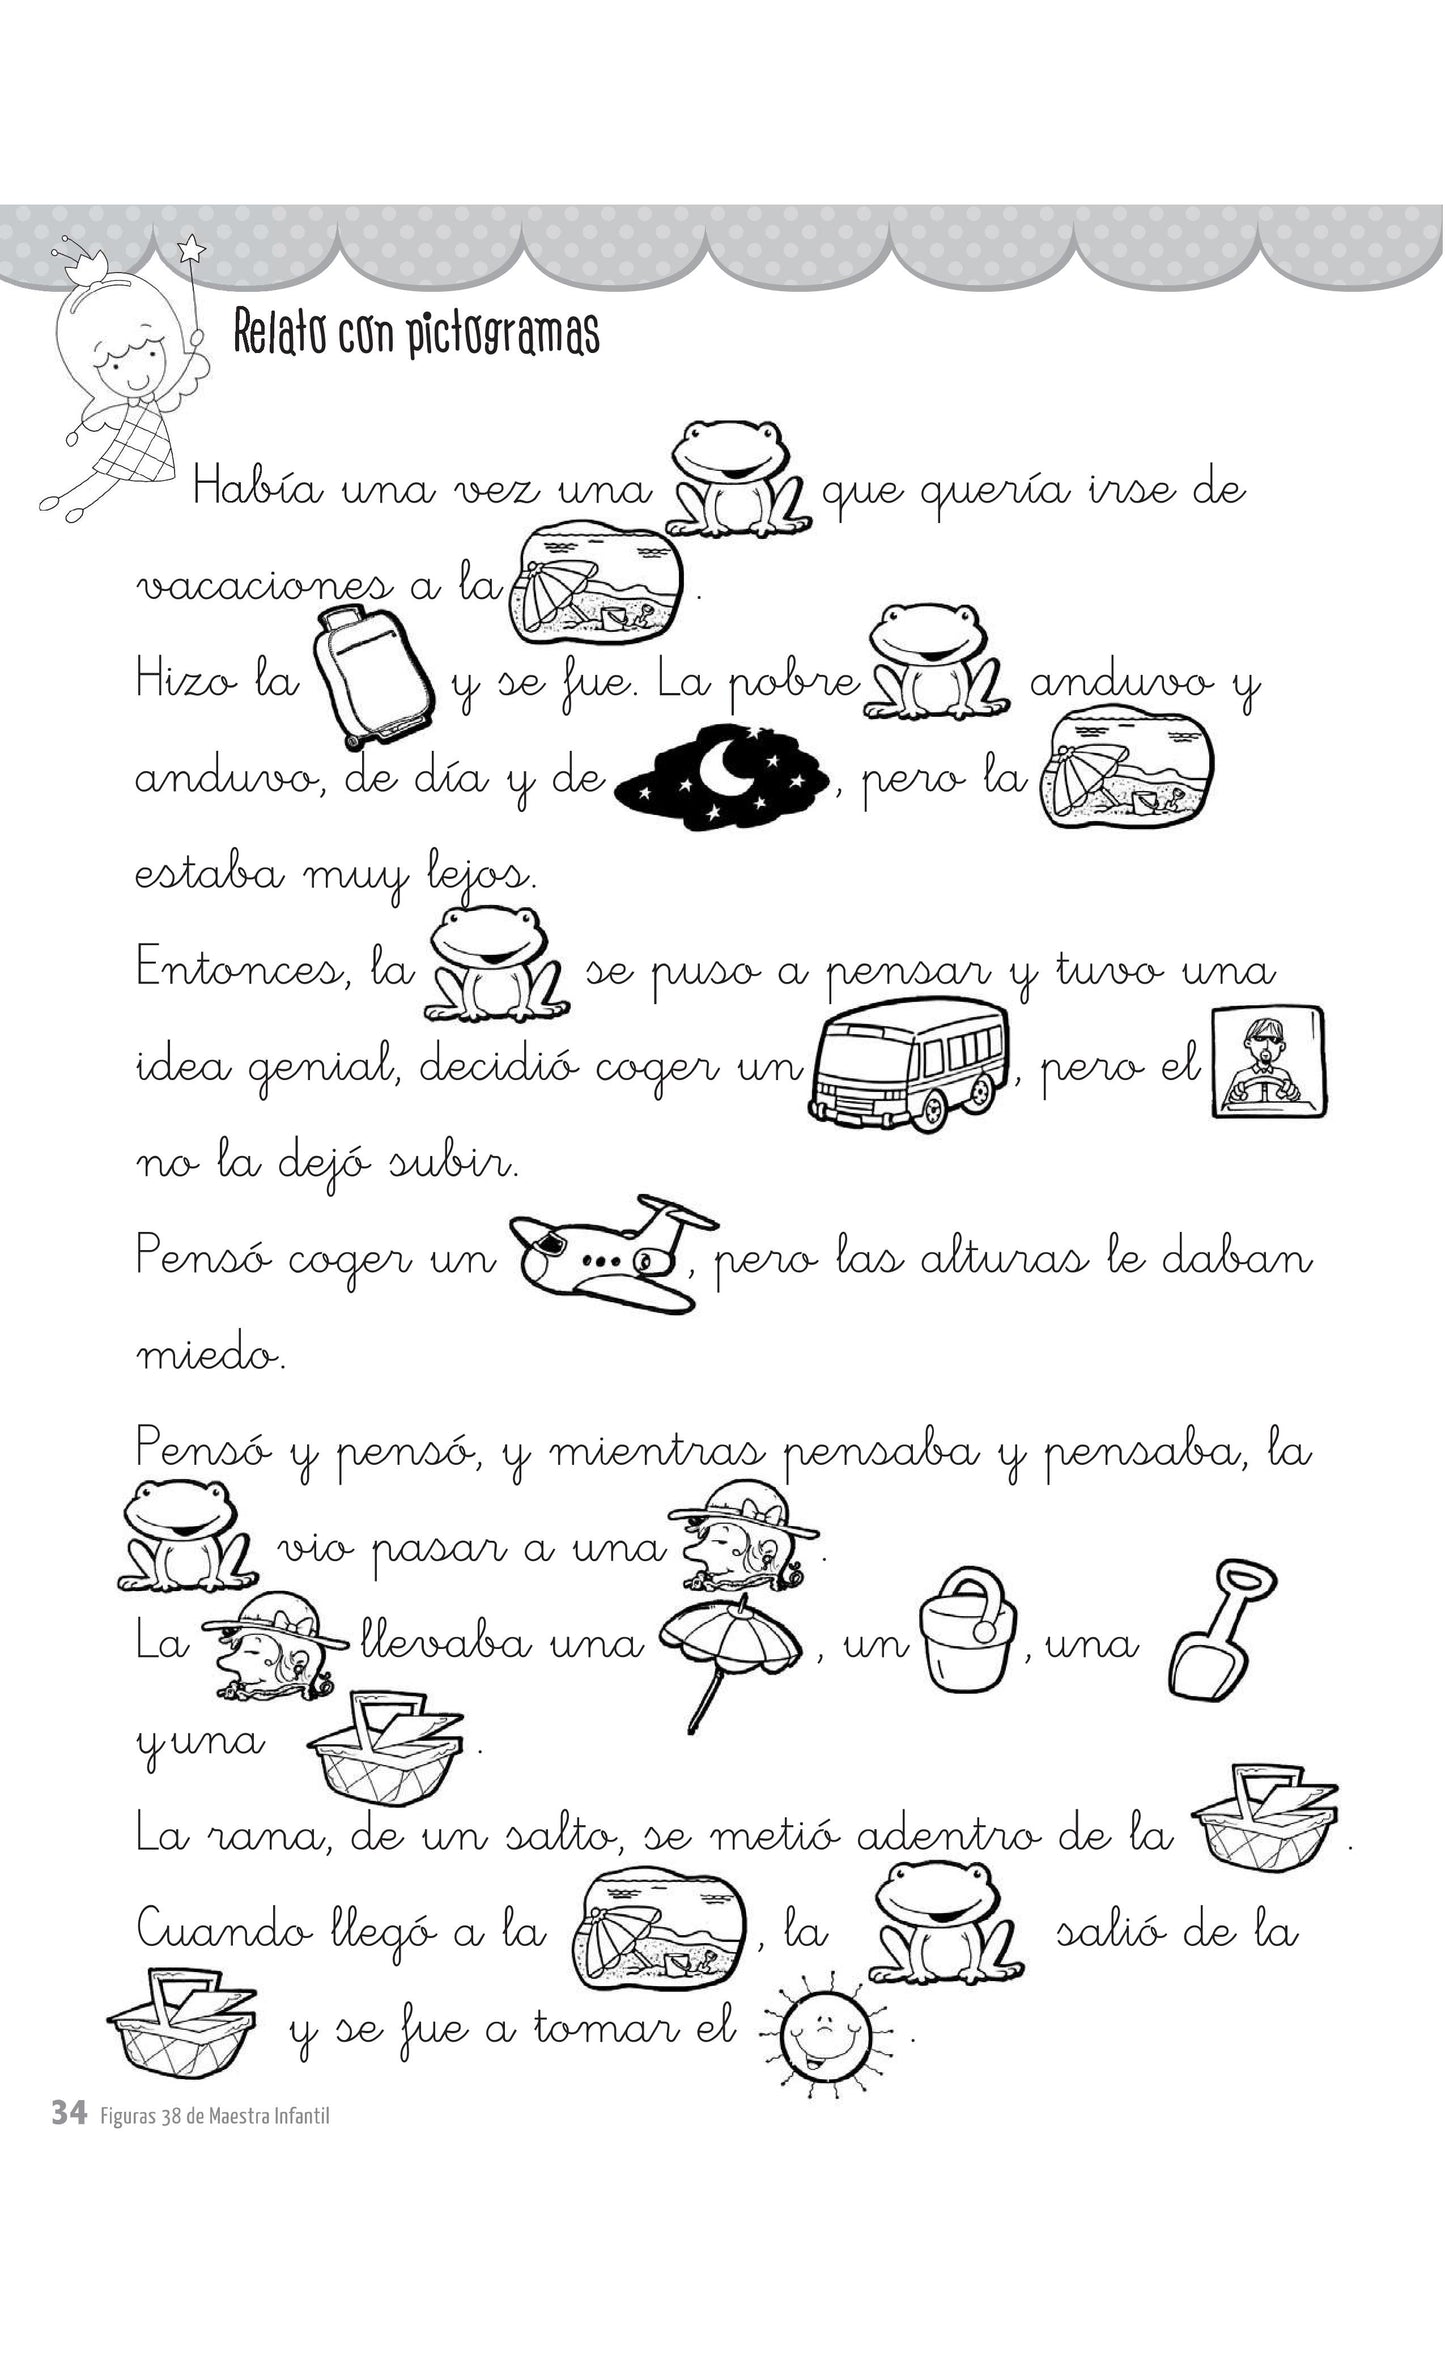 Relato con pictogramas
Había una vez una que quería irse de
vacaciones a la .
Hizo la y se fue. La pobre anduvo y
anduvo, de día y de , pero la
estaba muy lejos.
Entonces, la se puso a pensar y tuvo una
idea genial, decidió coger un , pero el
no la dejó subir.
Pensó coger un , pero las alturas le daban
miedo.
Pensó y pensó, y mientras pensaba y pensaba, la
vio pasar a una .
La llevaba una , un , una
y una .
La rana, de un salto, se metió adentro de la .
Cuando llegó a la , la salió de la
y se fue a tomar el .
34 Figuras 38 de Maestra Infantil